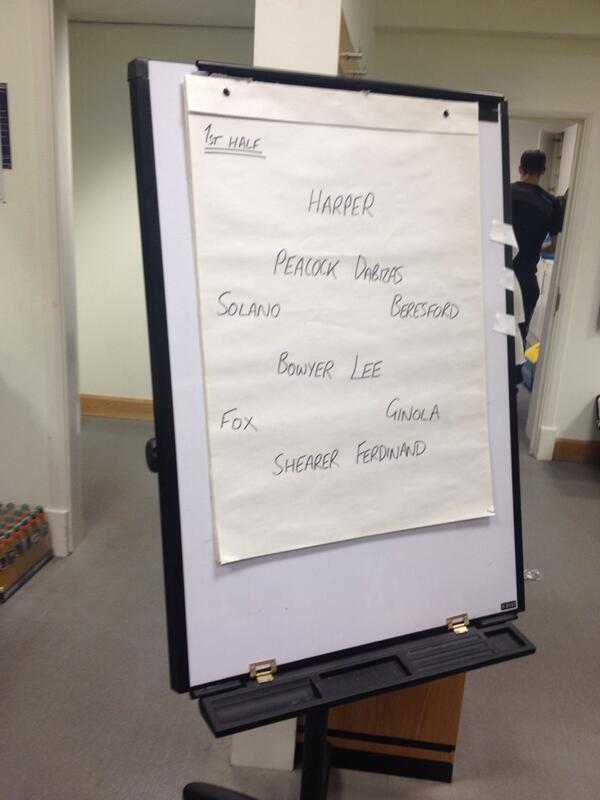 1ST HALF
HARPER
PEACOCK DABIZAS
SOLANO BERESFORD
BOWYER LEE
FOX GINOLA
SHEARER FERDINAND